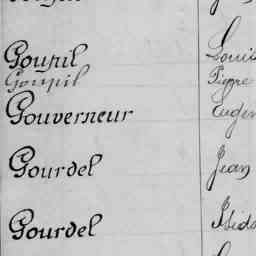 Goupil Louis
Goupil Pierre
Gouverneur Eugen
Gourdel Jean
Gourdel Isido